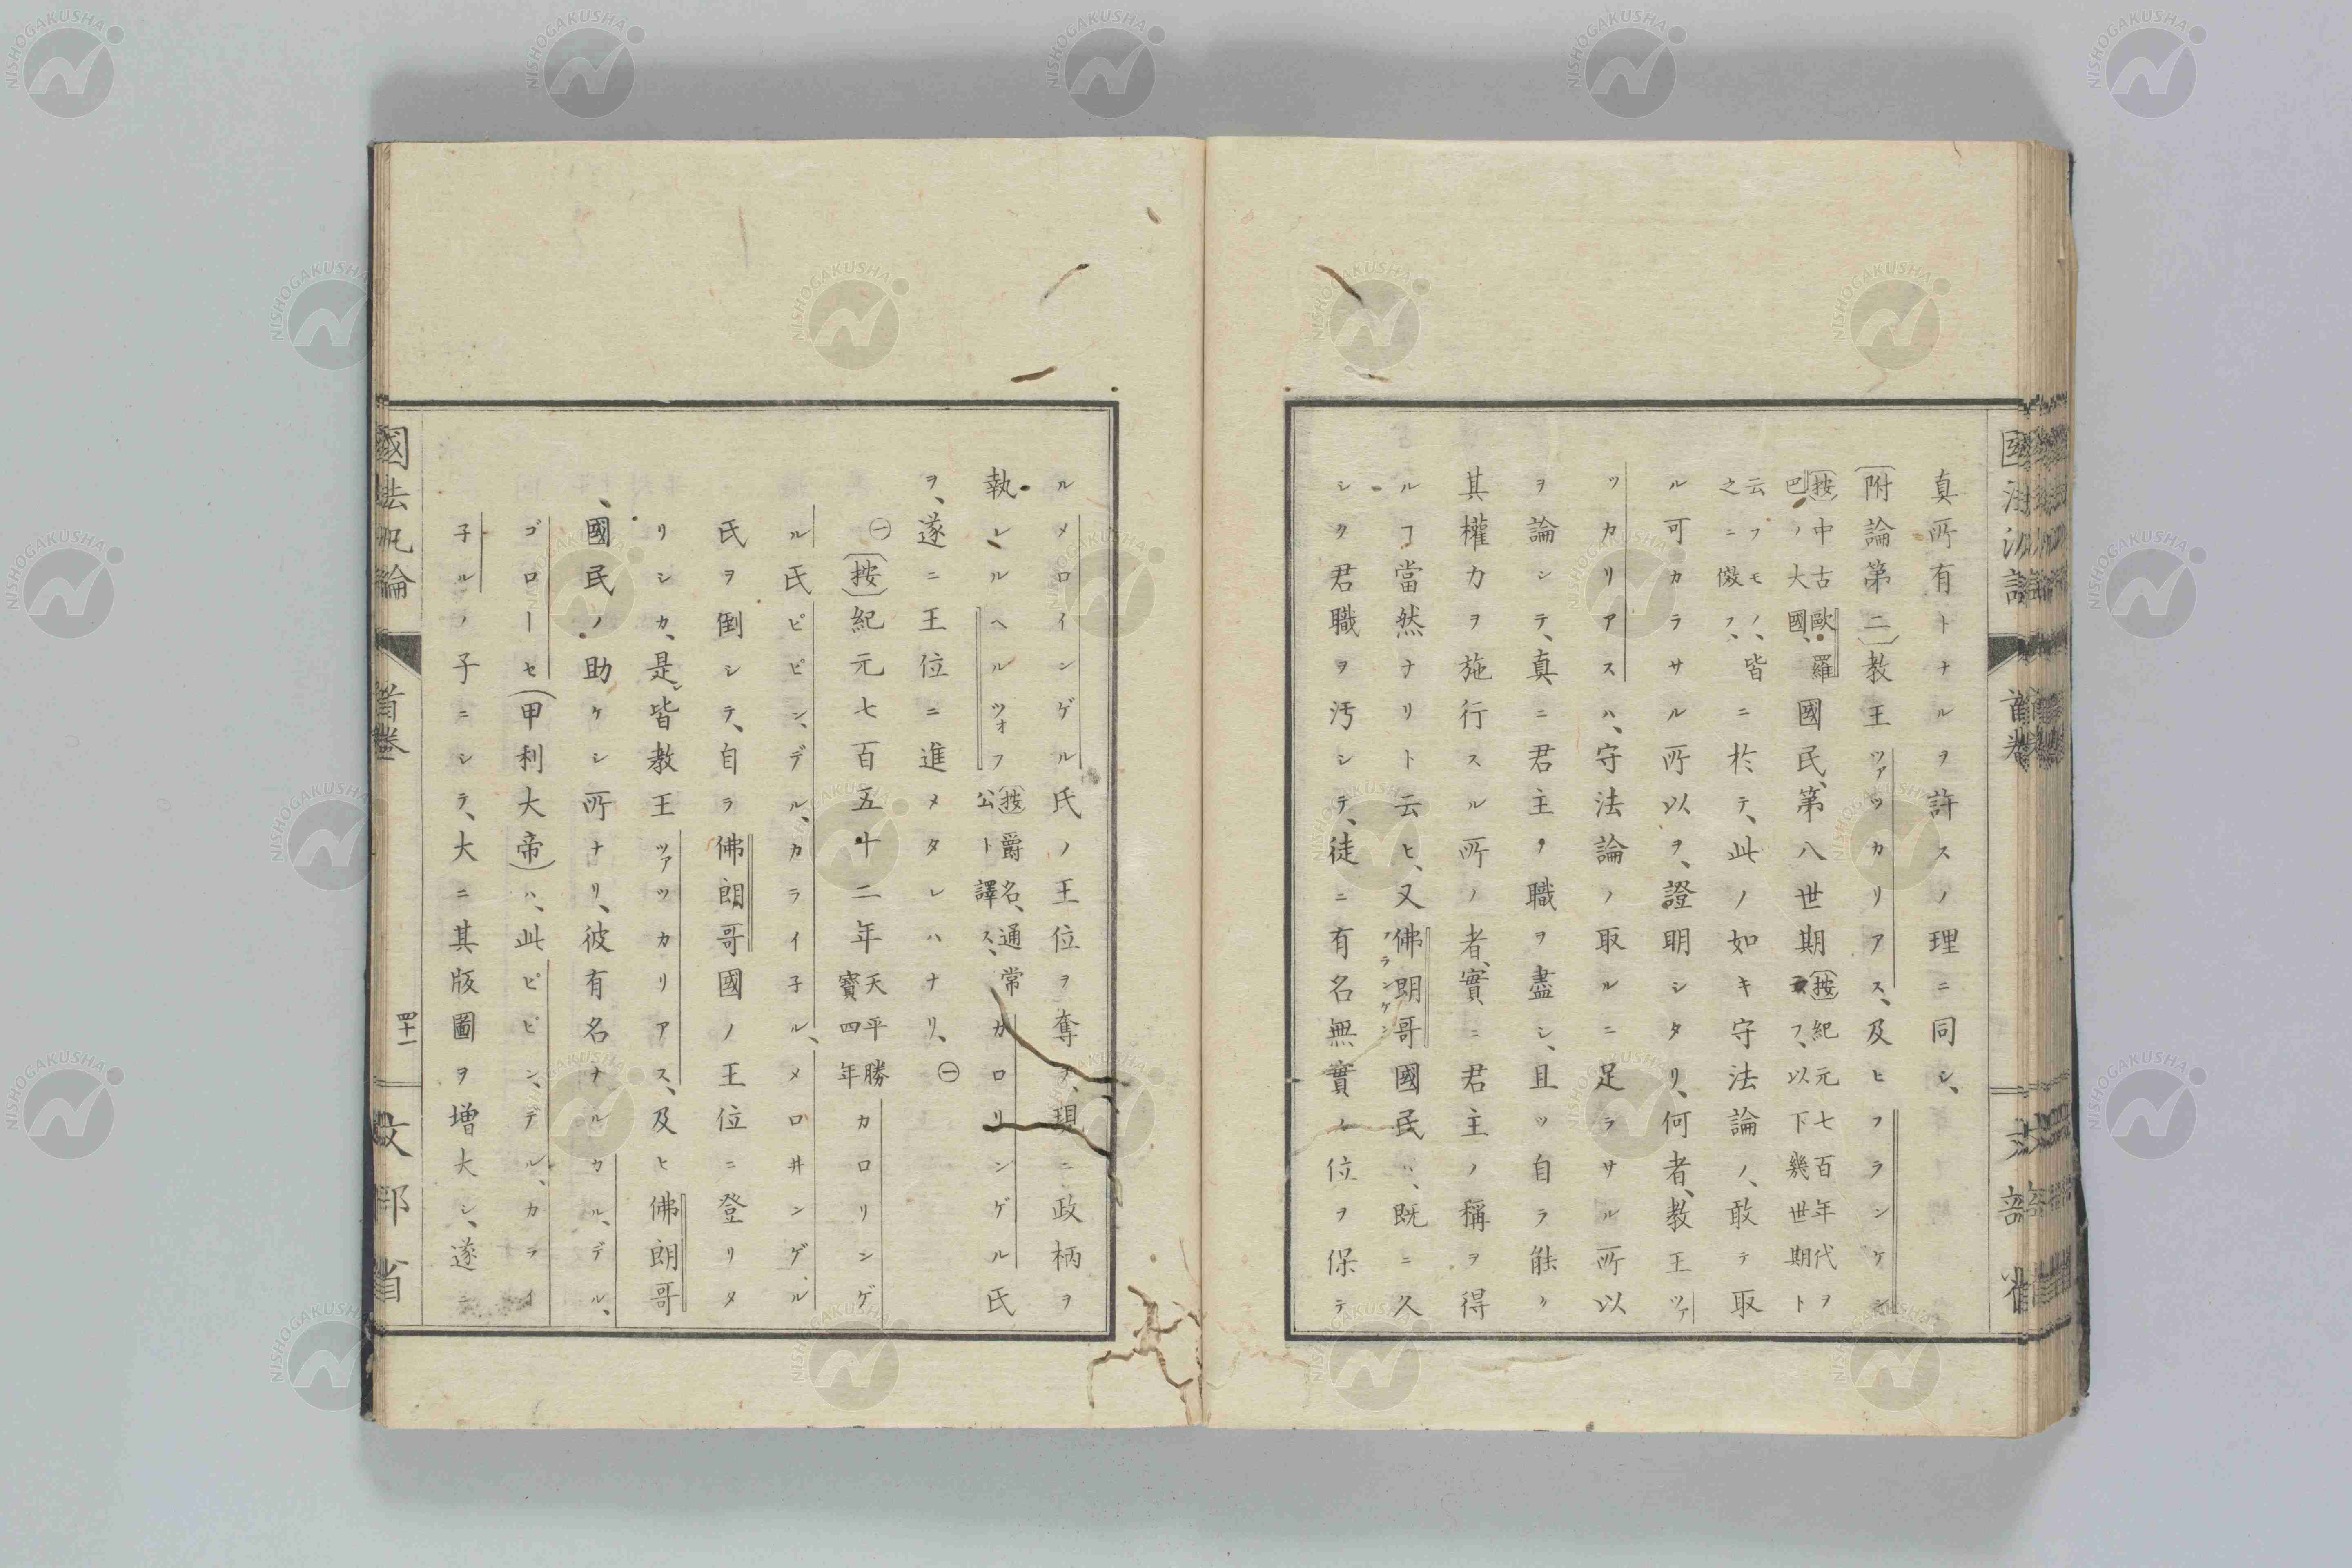 真所有トナルヲ許スノ理ニ同シ、
(附論第二)教王ツァツカリアス、及ヒフランケン
(按)中古歐羅巴ノ大國、國民、第八世期(按)紀元七百年代ヲ云フ、以下幾世期ト
云フモノ、皆之ニ倣フ、ニ於テ、此ノ如キ守法論ノ、敢テ取
ル可カラサル所以ヲ、證明シタリ、何者、教王ツァ
ツカリアスハ、守法論ノ取ルニ足ラサル所以
ヲ論シテ、真ニ君主タル職ヲ盡シ、且ツ自ラ能ク
其權力ヲ施行スル所ノ者、實ニ君主ノ稱ヲ得
ルヿ當然ナリト云ヒ、又佛朗哥フランケン國民ハ、既ニ久
シク君職ヲ汚シテ、徒ニ有名無實ノ位ヲ保テ
ルメロインゲル氏ノ王位ヲ奪ヲ、現ニ政柄ヲ
執レルヘルツォフ(按)爵名、通常公ト譯ス、カロリンゲル氏
ヲ、遂ニ王位ニ進メタレハナリ、㊀
㊀(按)紀元七百五十二年天平勝寶四年カロリンゲ
ル氏ピピン、デル、カライ子ル、メロ井ンゲル
氏ヲ倒シテ、自ラ佛朗哥國ノ王位ニ登リタ
リシカ、是レ皆教王ツァツカリアス、及ヒ佛朗哥
國民ノ助ケシ所ナリ、彼有名ナルカル、デル、
ゴローセ(甲利大帝)ハ、此ピピン、デル、カライ
子ルノ子ニシテ、大ニ其版圖ヲ增大シ、遂ニ
國法汎論
首卷
四十一
文部省